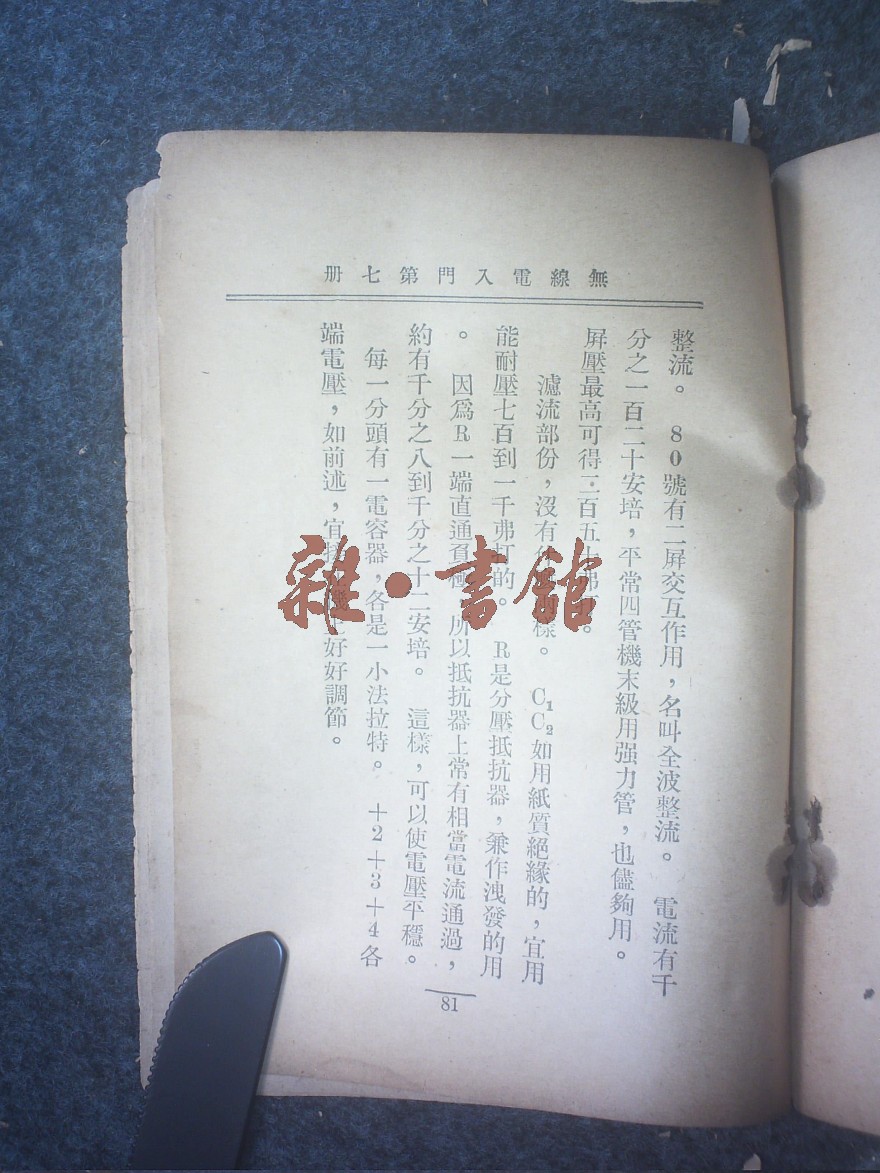 無線電入門第七册
整流。 80號有二屏交互作用，名叫全波整流。 電流有千
分之一百二十安培，平常四管機末級用强力管，也儘夠用。
屏壓最高可得三百五十弗打。
濾流部份，沒有什樣。 C₁C₂如用紙質絕緣的，宜用
能耐壓七百到一千弗打的。 R是分壓抵抗器，兼作洩發的用
。 因爲R一端直通負極，所以抵抗器上常有相當電流通過，
約有千分之八到千分之十二安培。 這樣，可以使電壓平穩。
每一分頭有一電容器，各是一小法拉特。 +2+3+4各
端電壓，如前述，宜好好調節。
81
雜·書館